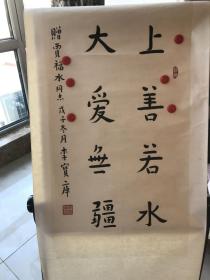 上善若水
大爱無疆
贈賈福水同志 戊子冬月 李寶庫